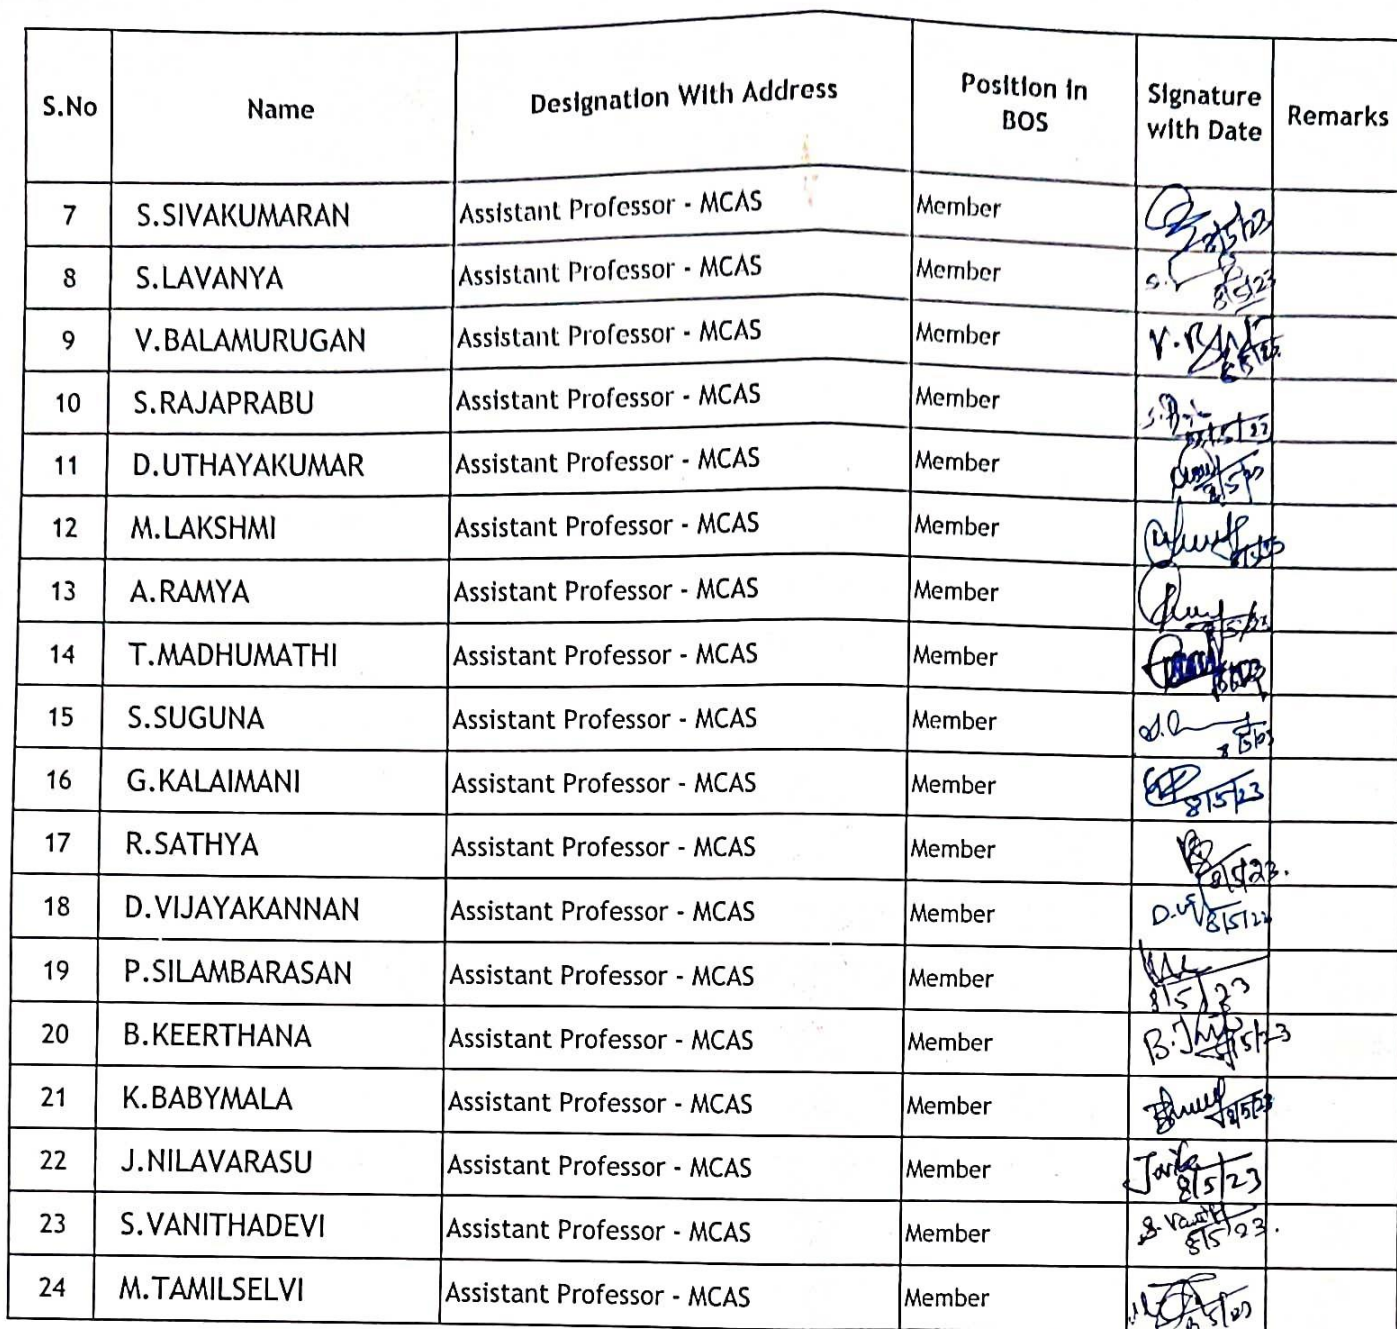 S.No Name Designation With Address Position in BOS Signature with Date Remarks
7 S.SIVAKUMARAN Assistant Professor - MCAS Member 8/5/23
8 S.LAVANYA Assistant Professor - MCAS Member S. 8/5/23
9 V.BALAMURUGAN Assistant Professor - MCAS Member
10 S.RAJAPRABU Assistant Professor - MCAS Member
11 D.UTHAYAKUMAR Assistant Professor - MCAS Member
12 M.LAKSHMI Assistant Professor - MCAS Member
13 A.RAMYA Assistant Professor - MCAS Member
14 T.MADHUMATHI Assistant Professor - MCAS Member
15 S.SUGUNA Assistant Professor - MCAS Member
16 G.KALAIMANI Assistant Professor - MCAS Member 8/5/23
17 R.SATHYA Assistant Professor - MCAS Member 8/5/23.
18 D.VIJAYAKANNAN Assistant Professor - MCAS Member
19 P.SILAMBARASAN Assistant Professor - MCAS Member 8/5/23
20 B.KEERTHANA Assistant Professor - MCAS Member 8/5/23
21 K.BABYMALA Assistant Professor - MCAS Member 8/5/23
22 J.NILAVARASU Assistant Professor - MCAS Member 8/5/23
23 S.VANITHADEVI Assistant Professor - MCAS Member 8/5/23.
24 M.TAMILSELVI Assistant Professor - MCAS Member